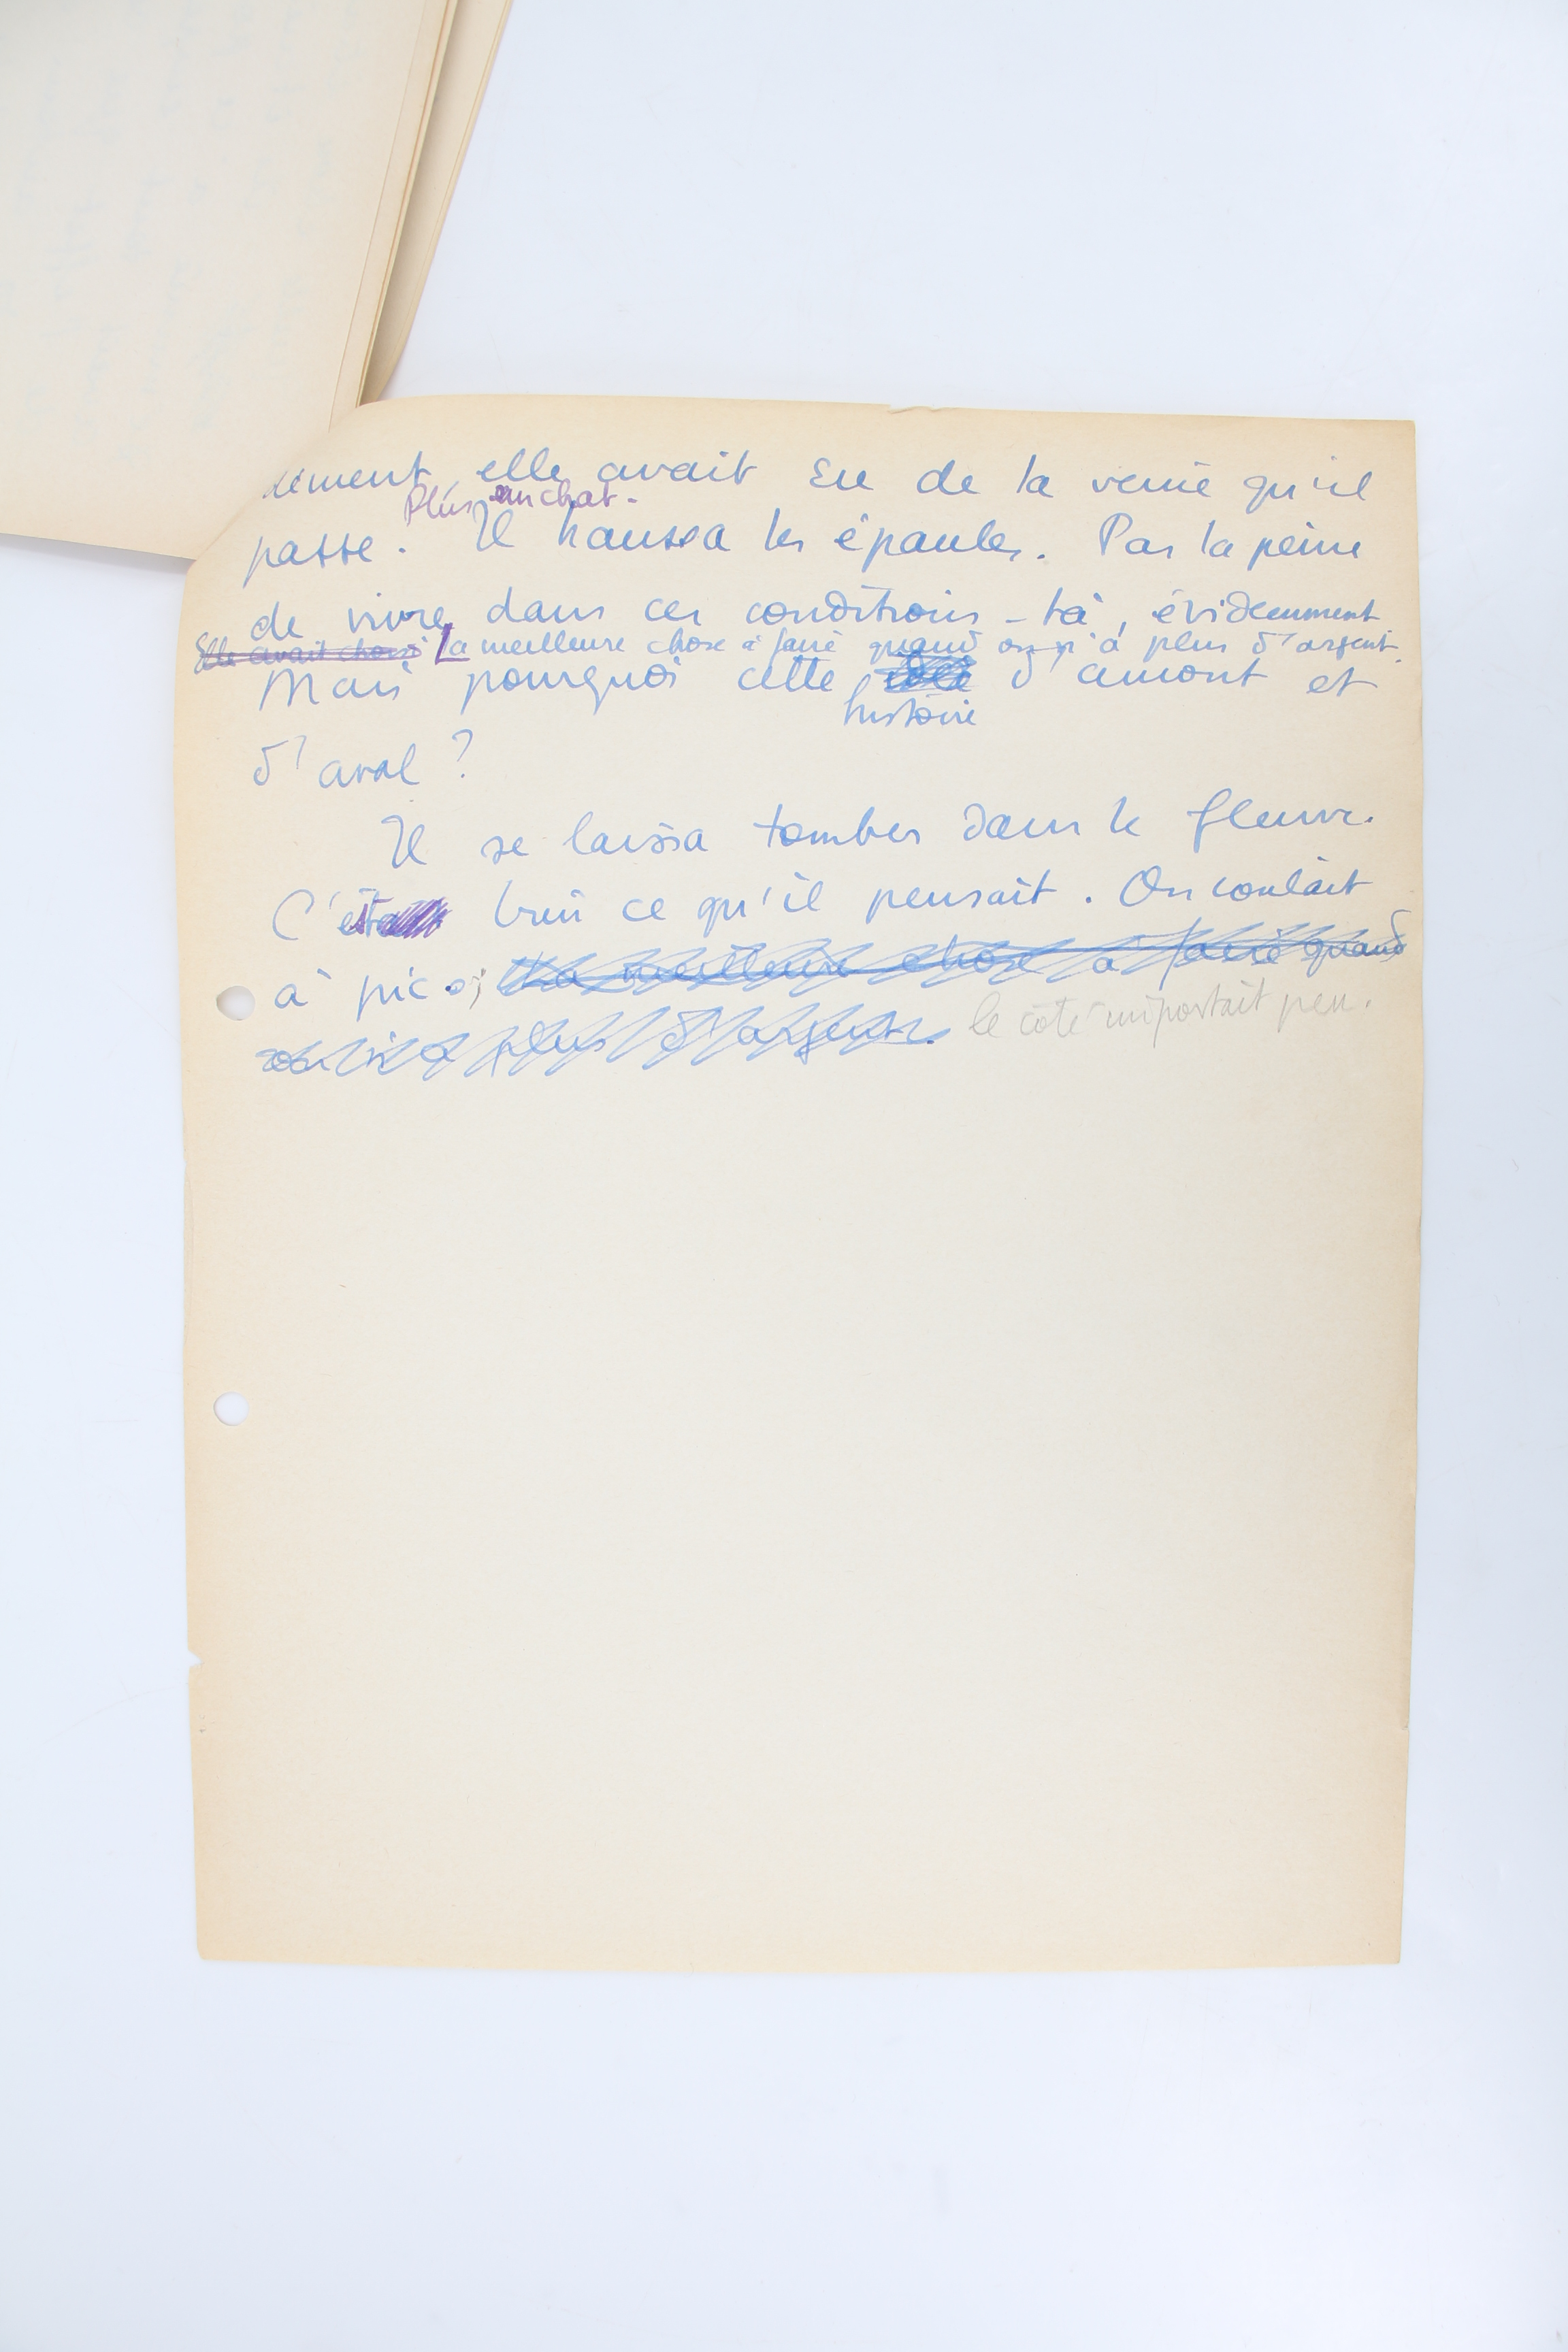 dément elle avait eu de la veine qu'il
Plus un chat.
passe. Il haussa les épaules. Pas la peine
de vivre dans ces conditions-là, évidemment
Elle avait choisi La meilleure chose à faire quand on n'a plus d'argent.
Mais pourquoi cette d'amont et
histoire
d'aval ?
Il se laissa tomber dans le fleuve.
C'était bien ce qu'il pensait. On coulait
à pic ; la meilleure chose à faire quand
on n'a plus d'argent. le côté importait peu.